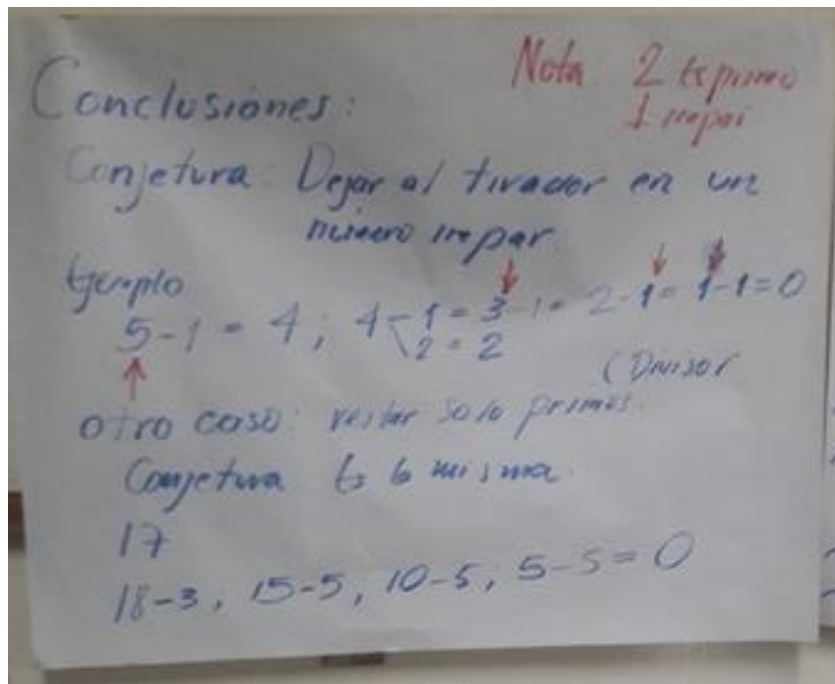 Conclusiones:
Nota 2 es primo
1 impar
Conjetura: Dejar al tirador en un
número impar.
Ejemplo
5-1 = 4; 4-1 = 3-1 = 2-1 = 1-1 = 0
2 = 2
(Divisor
otro caso: restar solo primos.
Conjetura es la misma.
17
18-3, 15-5, 10-5, 5-5=0